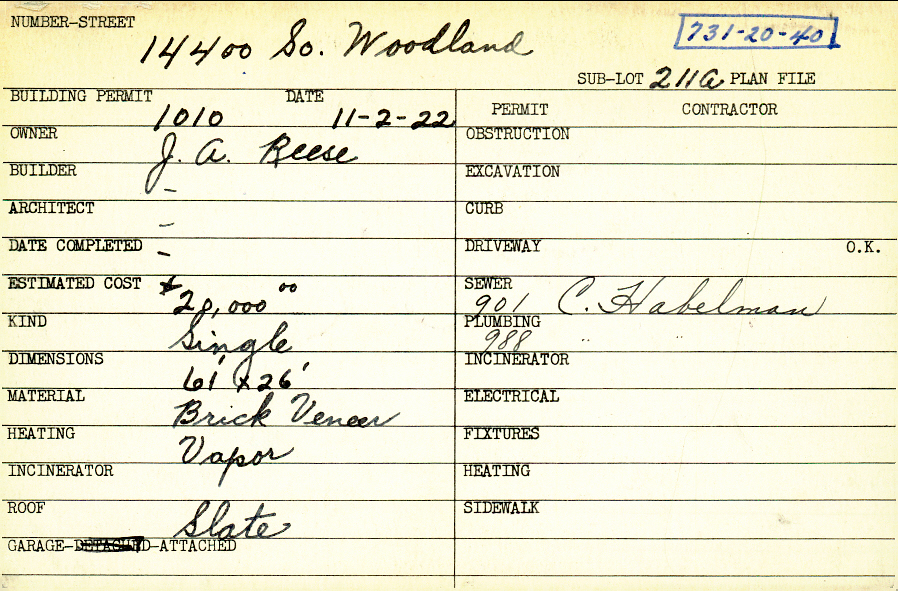 NUMBER-STREET
14400 So. Woodland
731-20-40
SUB-LOT 211a PLAN FILE
BUILDING PERMIT DATE
1010 11-2-22
PERMIT CONTRACTOR
OWNER J. A. Reese
OBSTRUCTION
BUILDER -
EXCAVATION
ARCHITECT -
CURB
DATE COMPLETED -
DRIVEWAY O.K.
ESTIMATED COST $ 20,000 00
SEWER 901 C. Habelman
KIND Single
PLUMBING 988 " "
DIMENSIONS 61' x 26'
INCINERATOR
MATERIAL Brick Veneer
ELECTRICAL
HEATING Vapor
FIXTURES
INCINERATOR
HEATING
ROOF Slate
SIDEWALK
GARAGE-DETACHED-ATTACHED